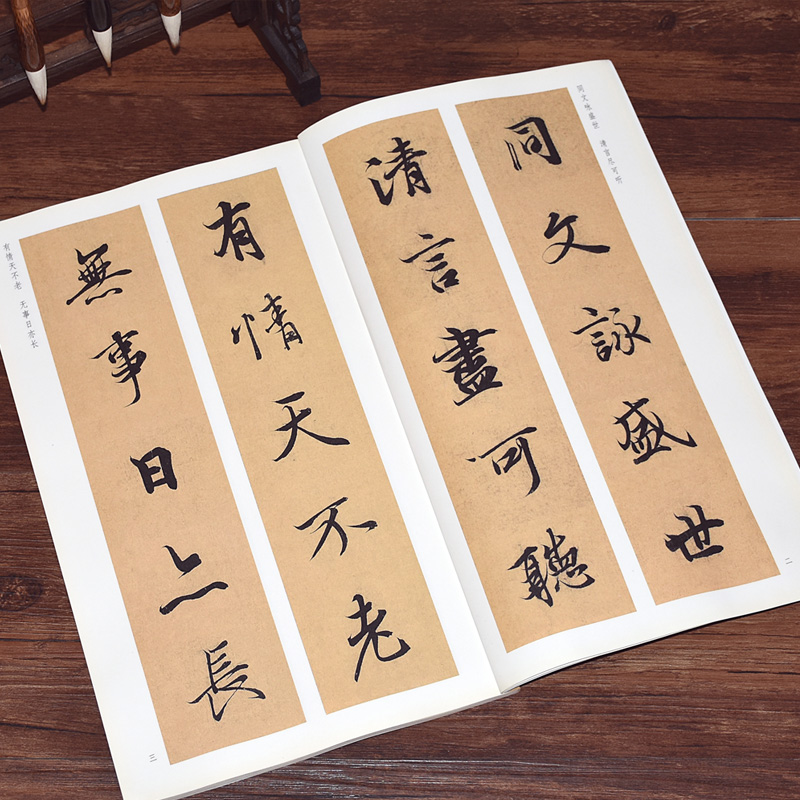 同文咏盛世 清言尽可听
同文詠盛世
清言盡可聽
二
有情天不老
無事日亦長
有情天不老 无事日亦长
三